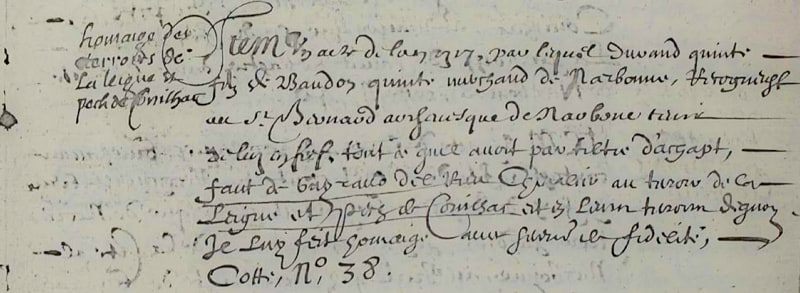 homaige des
terroirs de
La leigne et
pech de Conilhac
Item Un acte de lan 1317, par lequel Durand quinte
filz de Vaudon quinte marchand de Narbonne, Recogneust
au Sr Bernard archevesque de Narbone tenir
de luy en fief, tout ce quil avoit par tiltre d'achapt,
faict de del Riu au terroir de La
Leigne et Pech de Conilhac et en Leur
Je Luy feit homaige avec serment de fidelité,
Cotte, No, 38.